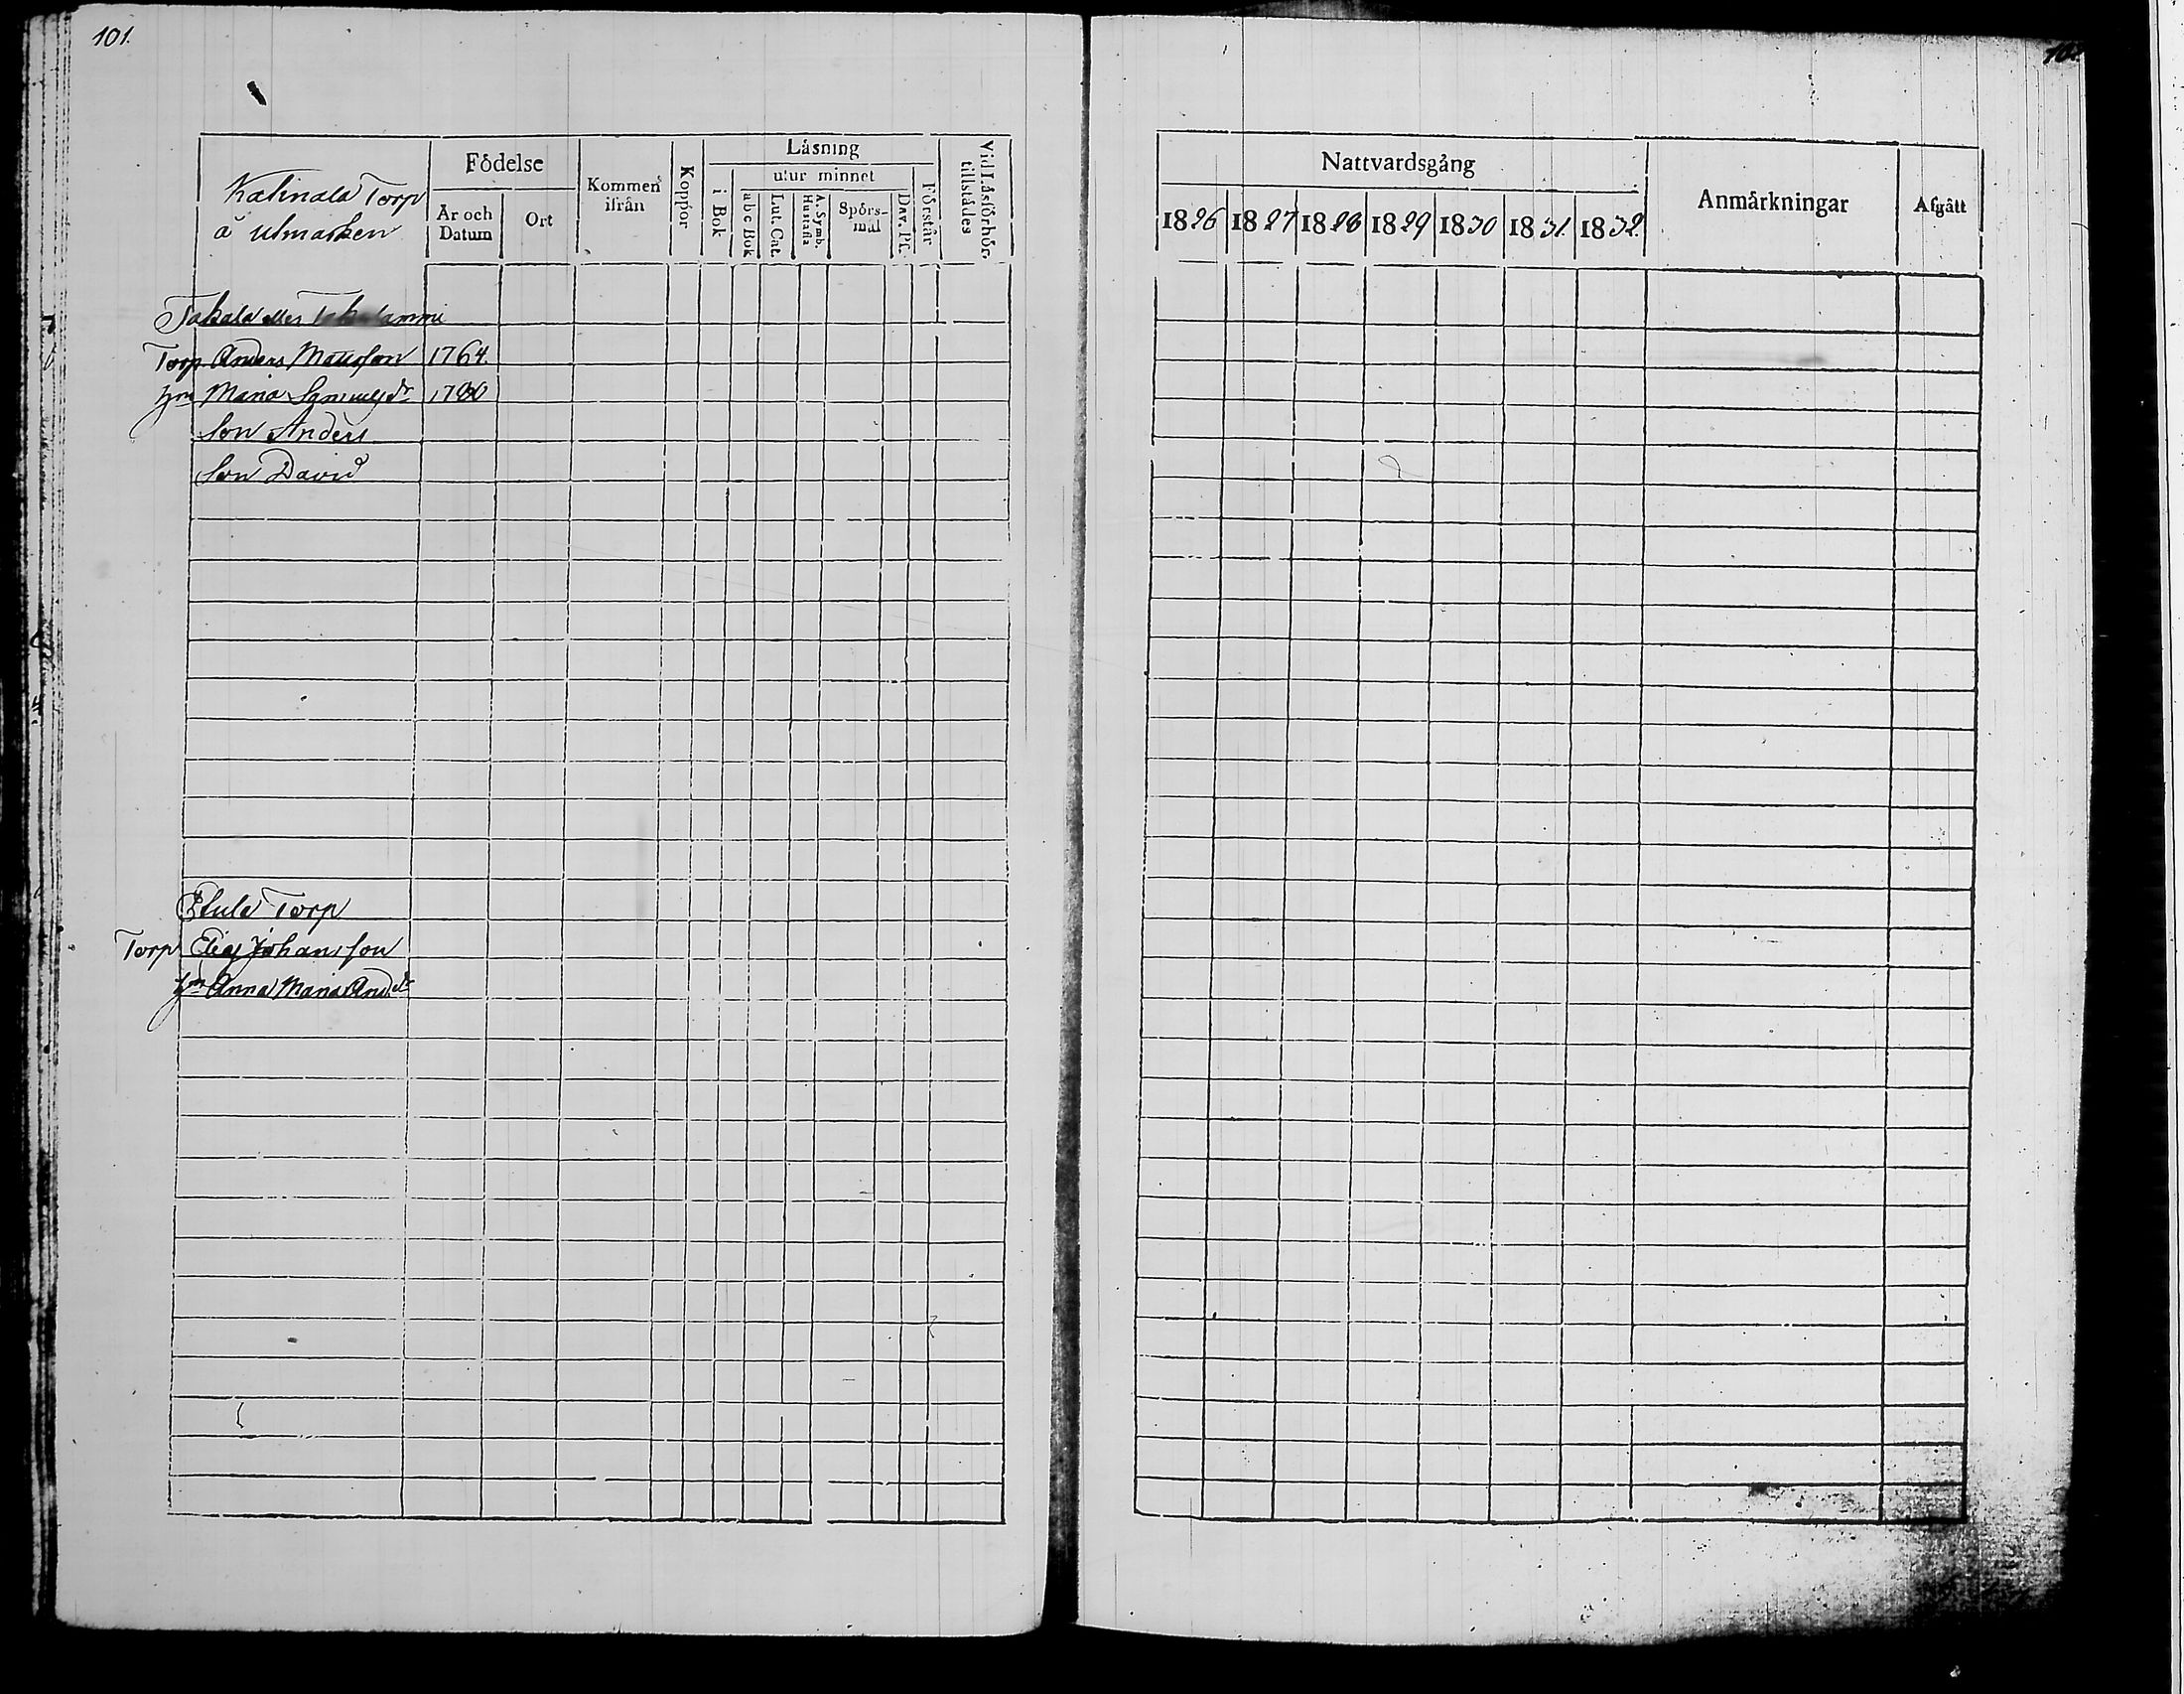 101.
Kaknala Torp
å Utmarken
Födelse
År och
Datum
Ort
Kommen
ifrån
Koppor
Läsning
i Bok
utur minnet
abc Bok
Lut. Cat.
A. Symb.
Hustafla
Spörs-
mål
Dav. Ps.
Förstår
Vid Läsförhör
tillstädes
Takala eller
Torp. Anders Mattsson 1764.
Maria Samuelsdr
Son Anders
Son David
Torp
Torp Elias Johansson
Anna Maria And.dr
Nattvardsgång
1826 1827 1828 1829 1830 1831. 1832.
Anmärkningar
Afgått